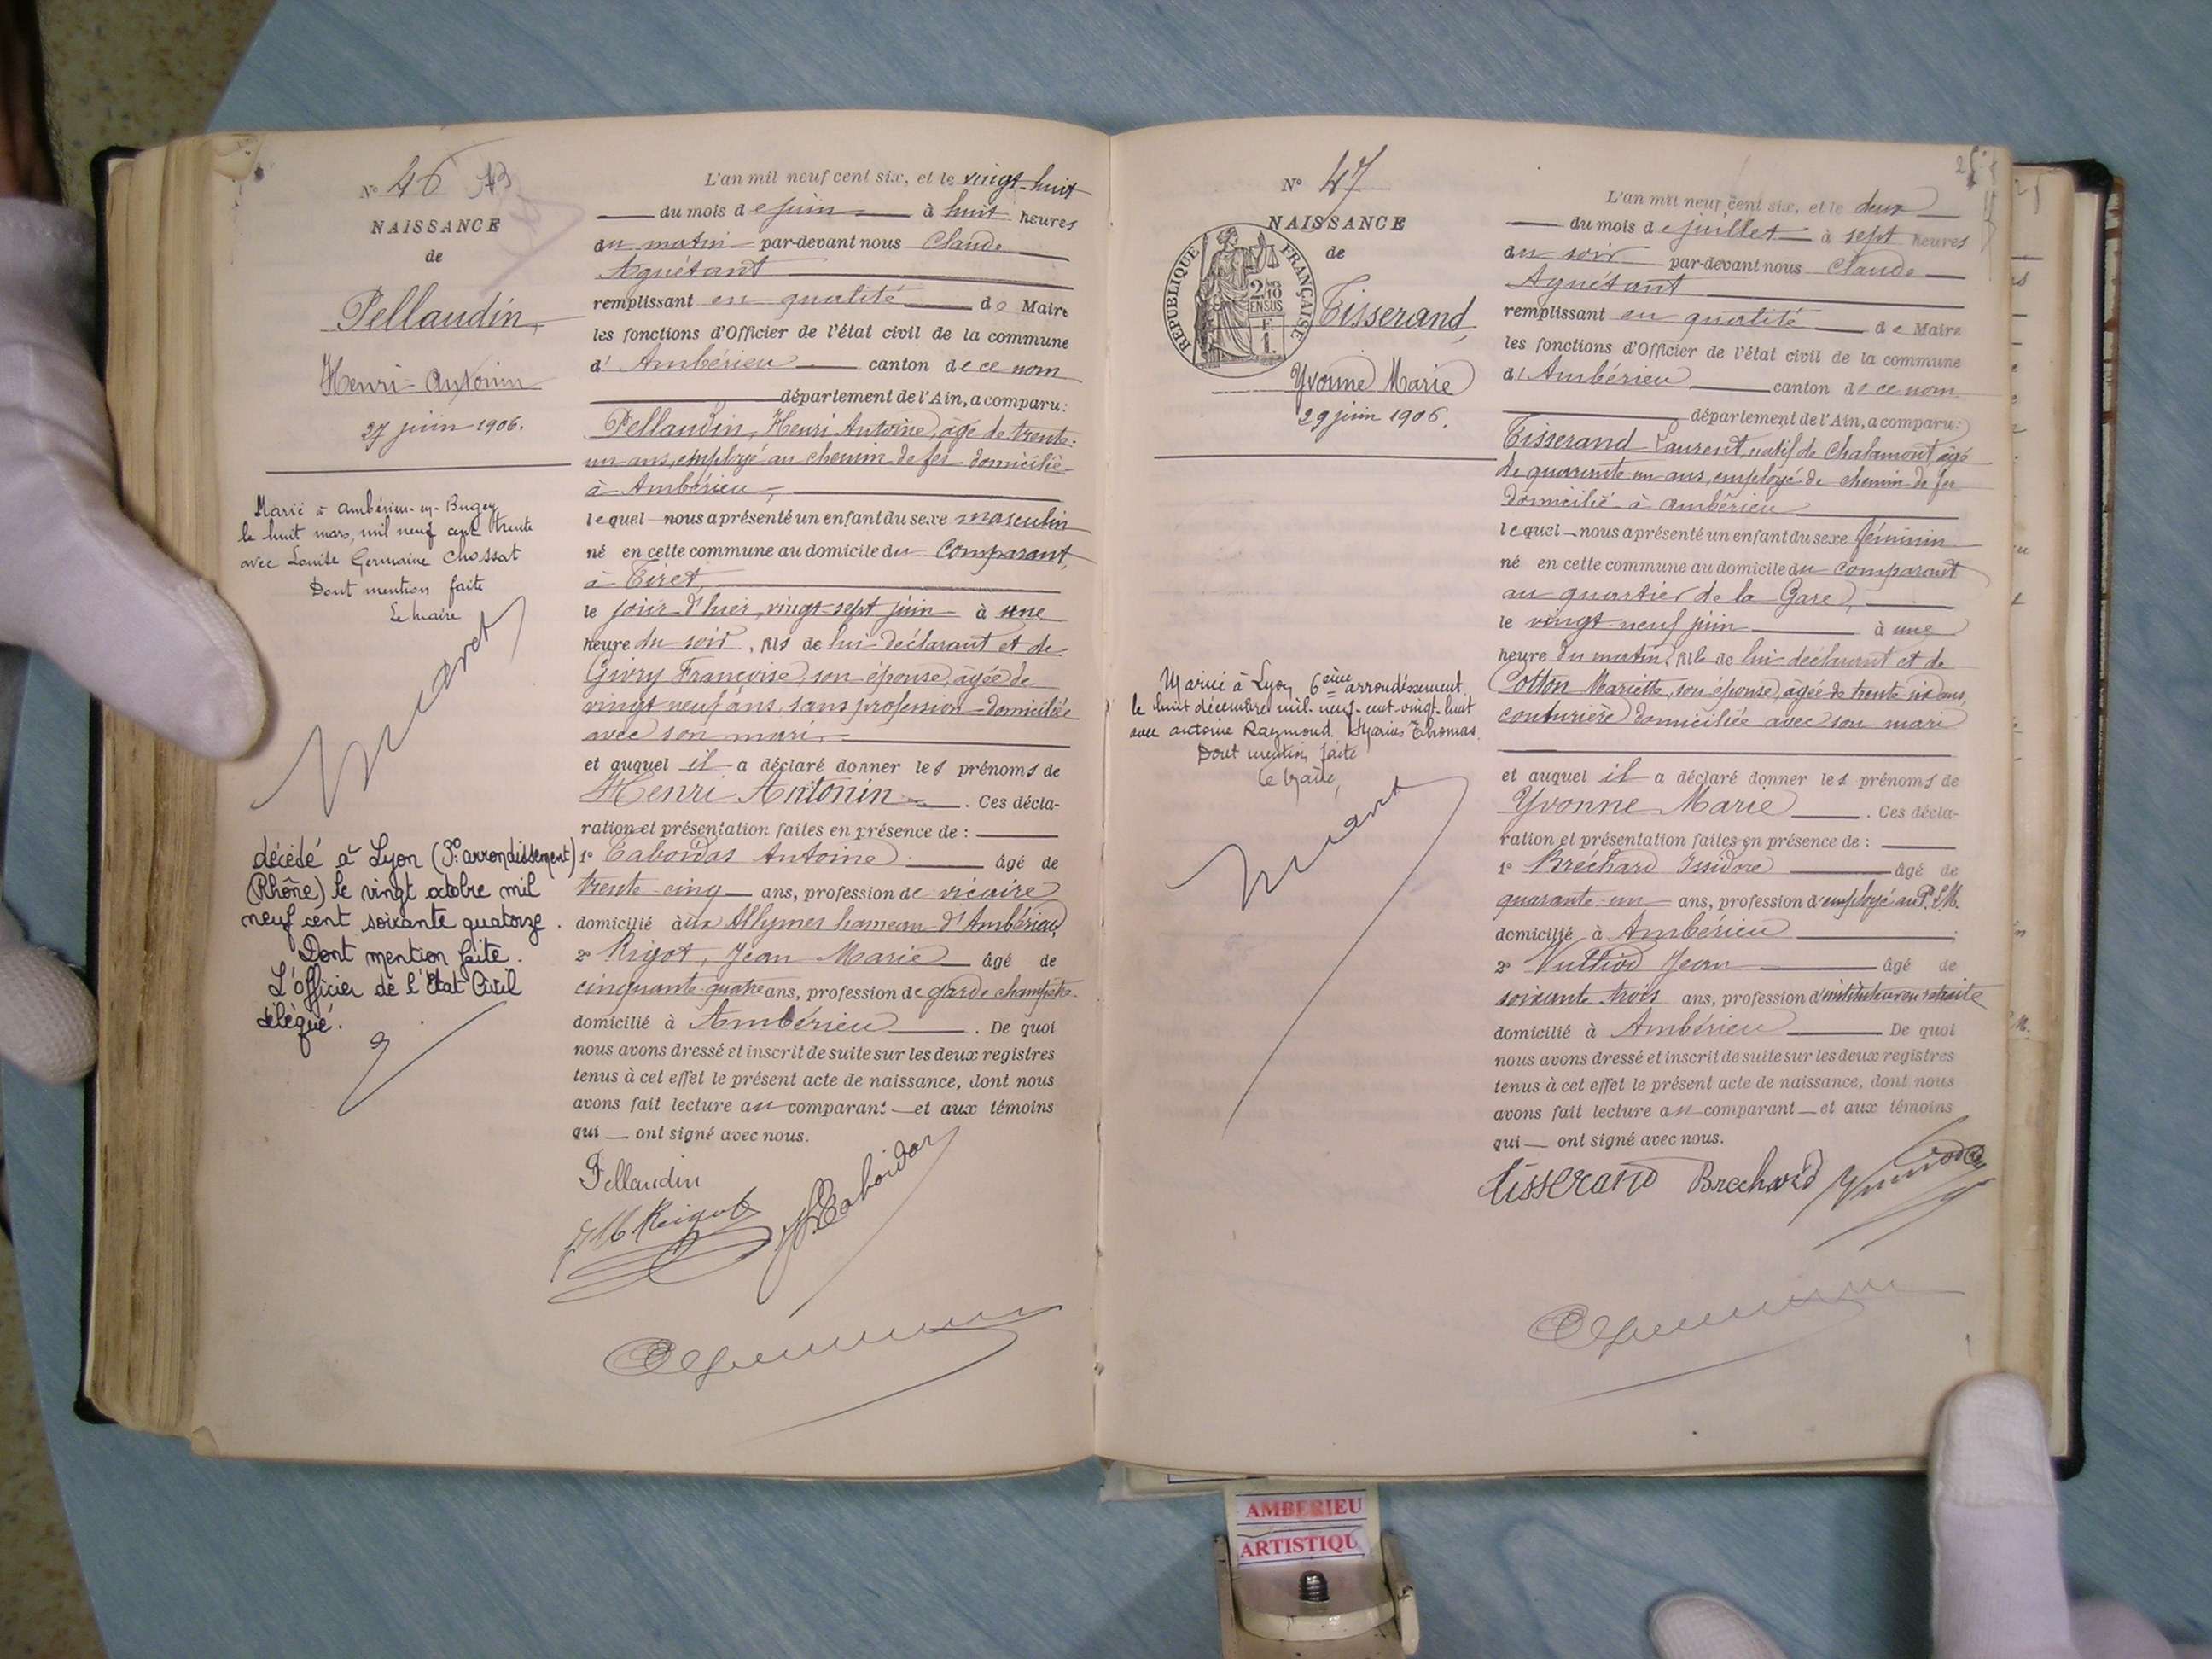 N° 46
NAISSANCE
de
Pellaudin,
Henri-Antonin
27 juin 1906.
Marié à Ambérieu-en-Bugey
le huit mars, mil neuf cent trente
avec Louise Germaine Chossat
Dont mention faite
Le maire
décédé à Lyon (3e arrondissement)
(Rhône) le vingt octobre mil
neuf cent soixante quatorze.
Dont mention faite.
L'officier de l'Etat Civil
délégué.
L'an mil neuf cent six, et le vingt-huit
du mois de juin à huit heures
du matin par-devant nous Claude
Aguétant
remplissant en qualité de Maire
les fonctions d'Officier de l'état civil de la commune
d' Ambérieu canton de ce nom
département de l'Ain, a comparu:
Pellaudin, Henri Antoine, âgé de trente-
un ans, employé au chemin de fer domicilié
à Ambérieu,
lequel nous a présenté un enfant du sexe masculin
né en cette commune au domicile du comparant,
à Tiret,
le jour d'hier, vingt-sept juin à une
heure du soir, fils de lui déclarant et de
Givry Françoise, son épouse, âgée de
vingt-neuf ans, sans profession domiciliée
avec son mari.
et auquel il a déclaré donner les prénoms de
Henri Antonin. Ces décla-
ration et présentation faites en présence de :
1° Tabordas Antoine âgé de
trente-cinq ans, profession de vicaire
domicilié aux Allymes hameau d'Ambérieu,
2° Rigot, Jean Marie âgé de
cinquante-quatre ans, profession de garde champêtre
domicilié à Ambérieu. De quoi
nous avons dressé et inscrit de suite sur les deux registres
tenus à cet effet le présent acte de naissance, dont nous
avons fait lecture au comparant et aux témoins
qui ont signé avec nous.
Pellaudin
N° 47
NAISSANCE
de
REPUBLIQUE FRANÇAISE
2/10
EN SUS
Tisserand,
Yvonne Marie
29 juin 1906.
Mariée à Lyon 6eme arrondissement
le huit décembre mil-neuf-cent-vingt-huit
avec Antoine Raymond Marius Thomas.
Dont mention faite
Le Maire,
L'an mil neuf cent six, et le deux
du mois de juillet à sept heures
du soir par-devant nous Claude
Aguétant
remplissant en qualité de Maire
les fonctions d'Officier de l'état civil de la commune
d' Ambérieu canton de ce nom
département de l'Ain, a comparu:
Tisserand Laurent, natif de Chalamont âgé
de quarante-un ans, employé de chemin de fer
domicilié à Ambérieu
lequel nous a présenté un enfant du sexe féminin
né en cette commune au domicile du comparant
au quartier de la Gare,
le vingt-neuf juin à une
heure du matin, fille de lui déclarant et de
Cotton Mariette, son épouse, âgée de trente-six ans,
couturière domiciliée avec son mari
et auquel il a déclaré donner les prénoms de
Yvonne Marie. Ces décla-
ration et présentation faites en présence de :
1° Bréchard Isidore âgé de
quarante-un ans, profession d'employé au P.L.M.
domicilié à Ambérieu ;
2° Vulliod Jean âgé de
soixante-trois ans, profession d'instituteur en retraite
domicilié à Ambérieu De quoi
nous avons dressé et inscrit de suite sur les deux registres
tenus à cet effet le présent acte de naissance, dont nous
avons fait lecture au comparant et aux témoins
qui ont signé avec nous.
Tisserand Brechard
AMBERIEU
ARTISTIQU